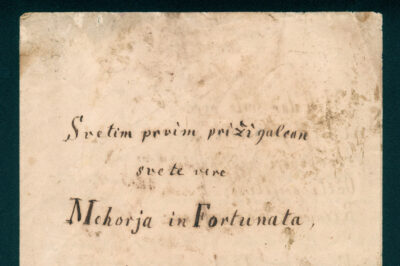 Svetim prvim prižigalcan
svete vere
Mohorja in Fortunata,